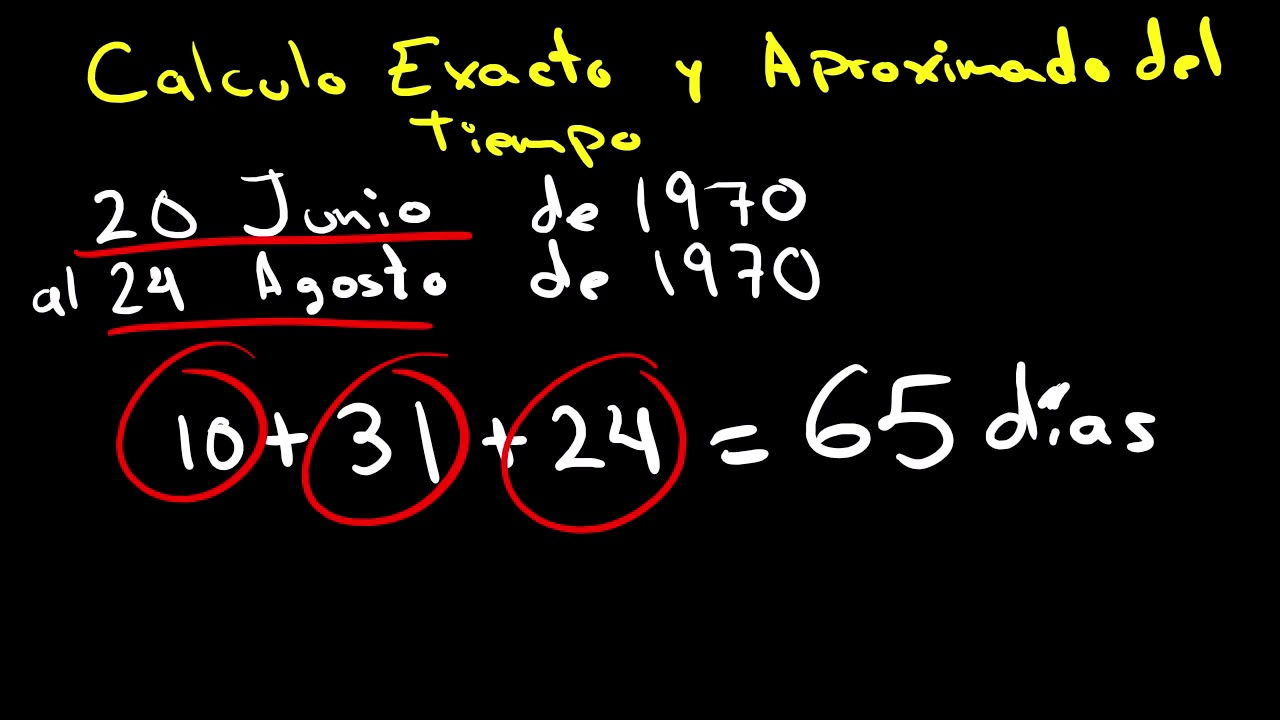 Calculo Exacto y Aproximado del
tiempo
20 Junio de 1970
al 24 Agosto de 1970
10 + 31 + 24 = 65 días